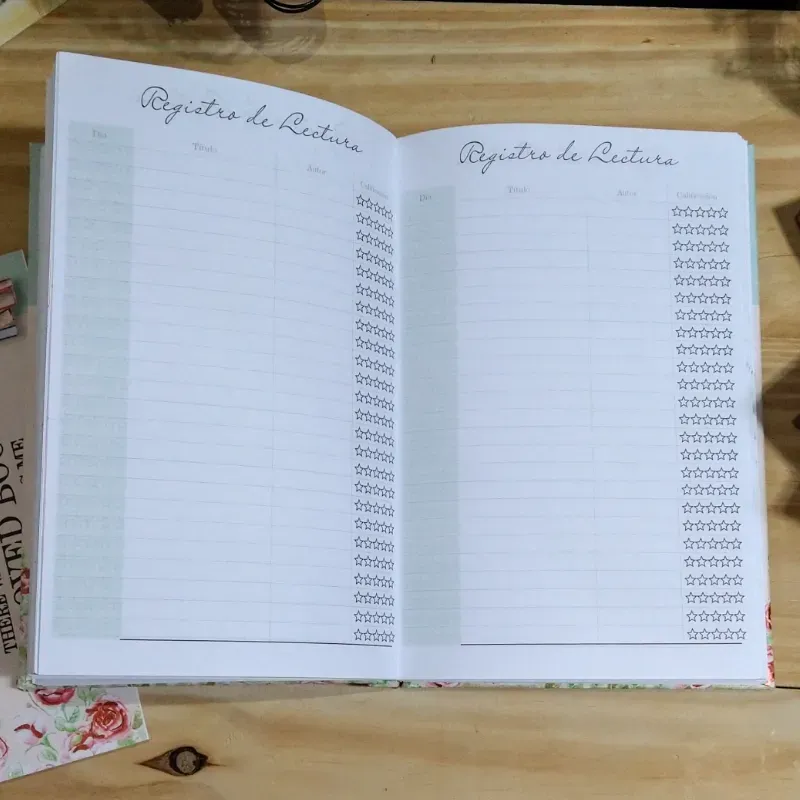 Registro de Lectura
Día Título Autor Calificación
Registro de Lectura
Día Título Autor Calificación
THERE
ME